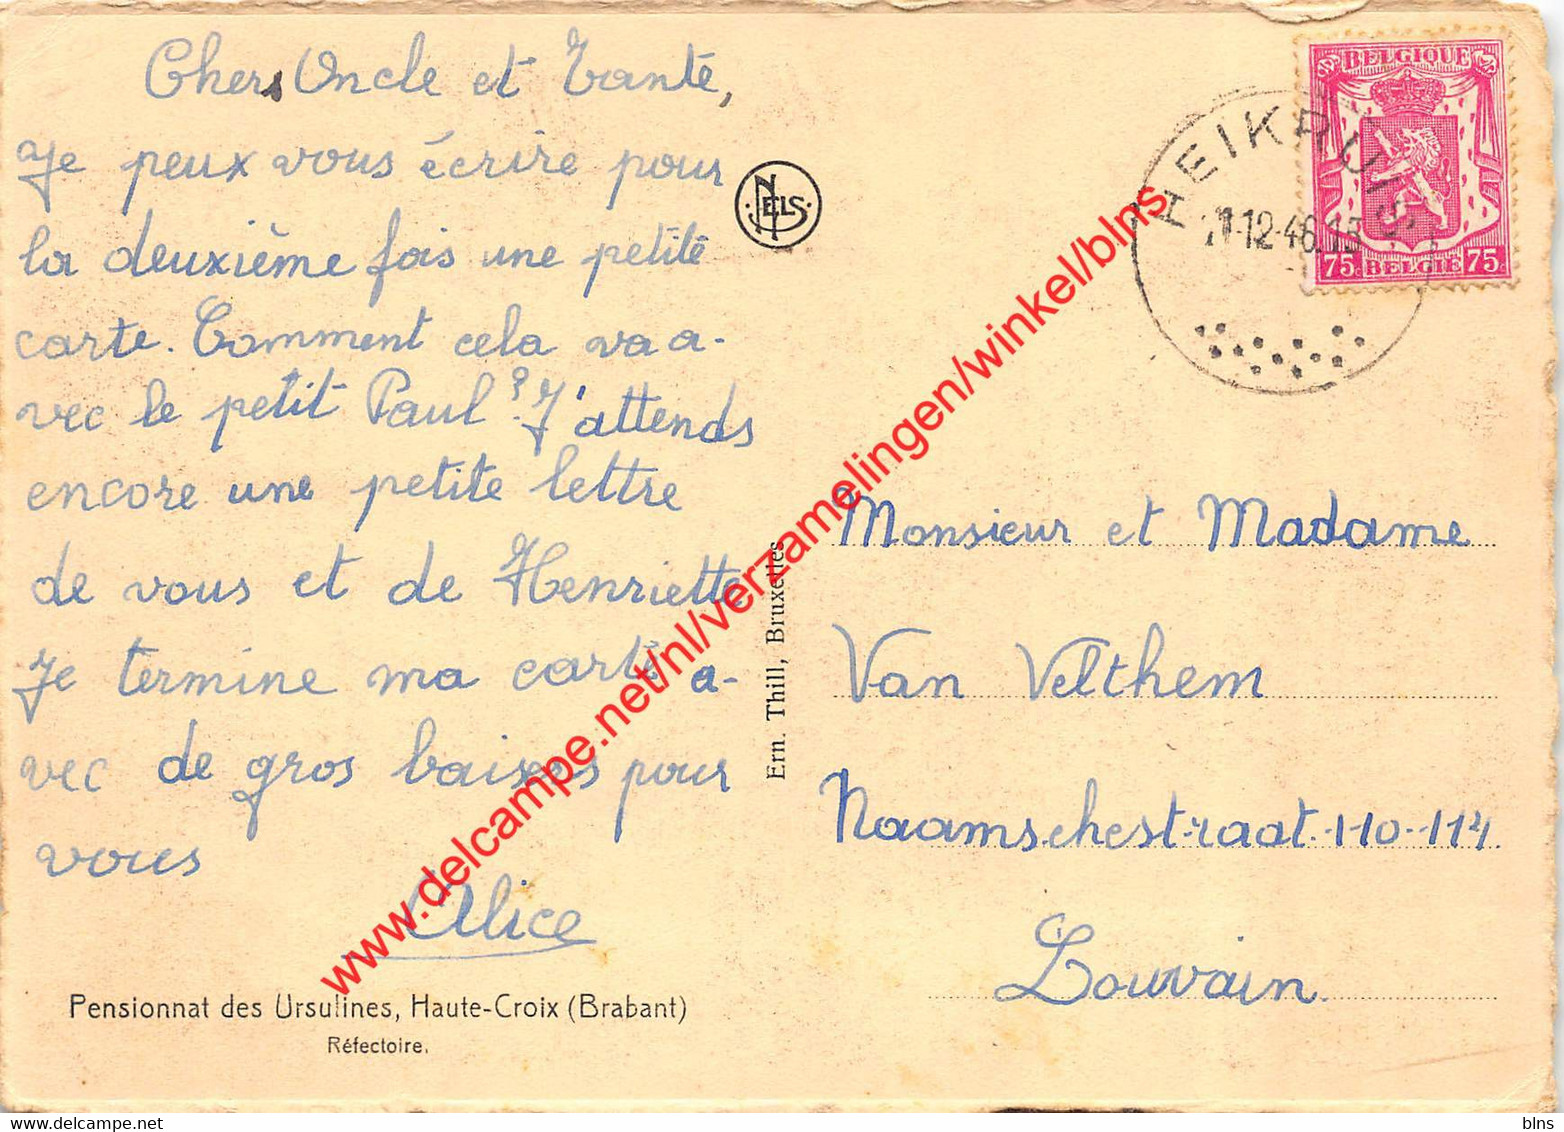 Chers Oncle et Tante,
Je peux vous écrire pour
la deuxième fois une petite
carte. Comment cela va a-
vec le petit Paul? J'attends
encore une petite lettre
de vous et de Henriette
Je termine ma carte a-
vec de gros baisers pour
vous
Alice
Pensionnat des Ursulines, Haute-Croix (Brabant)
Réfectoire.
NELS
Ern. Thill, Bruxelles
BELGIQUE
75 BELGIE 75
HEIKRUIS
1-12-46.13
Monsieur et Madame
Van Velthem
Naamschestraat 110-114
Louvain.
www.delcampe.net/nl/verzamelingen/winkel/blns
www.delcampe.net
blns